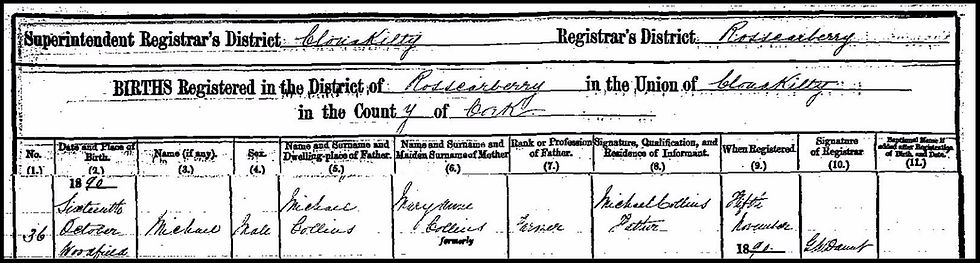 Superintendent Registrar's District Clonakilty Registrar's District Rosscarberry
BIRTHS Registered in the District of Rosscarberry in the Union of Clonakilty
in the County of Cork
No. Date and Place of Birth. Name (if any). Sex. Name and Surname and Dwelling-place of Father. Name and Surname and Maiden Surname of Mother Rank or Profession of Father. Signature, Qualification, and Residence of Informant. When Registered. Signature of Registrar Baptismal Name if added after Registration of Birth, and Date.
(1.) (2.) (3.) (4.) (5.) (6.) (7.) (8.) (9.) (10.) (11.)
1890
Sixteenth Michael Mary Anne Michael Collins Fifth
36 October Michael Male Collins Collins Farmer Father November
Woodfield formerly 1890. G W Daunt